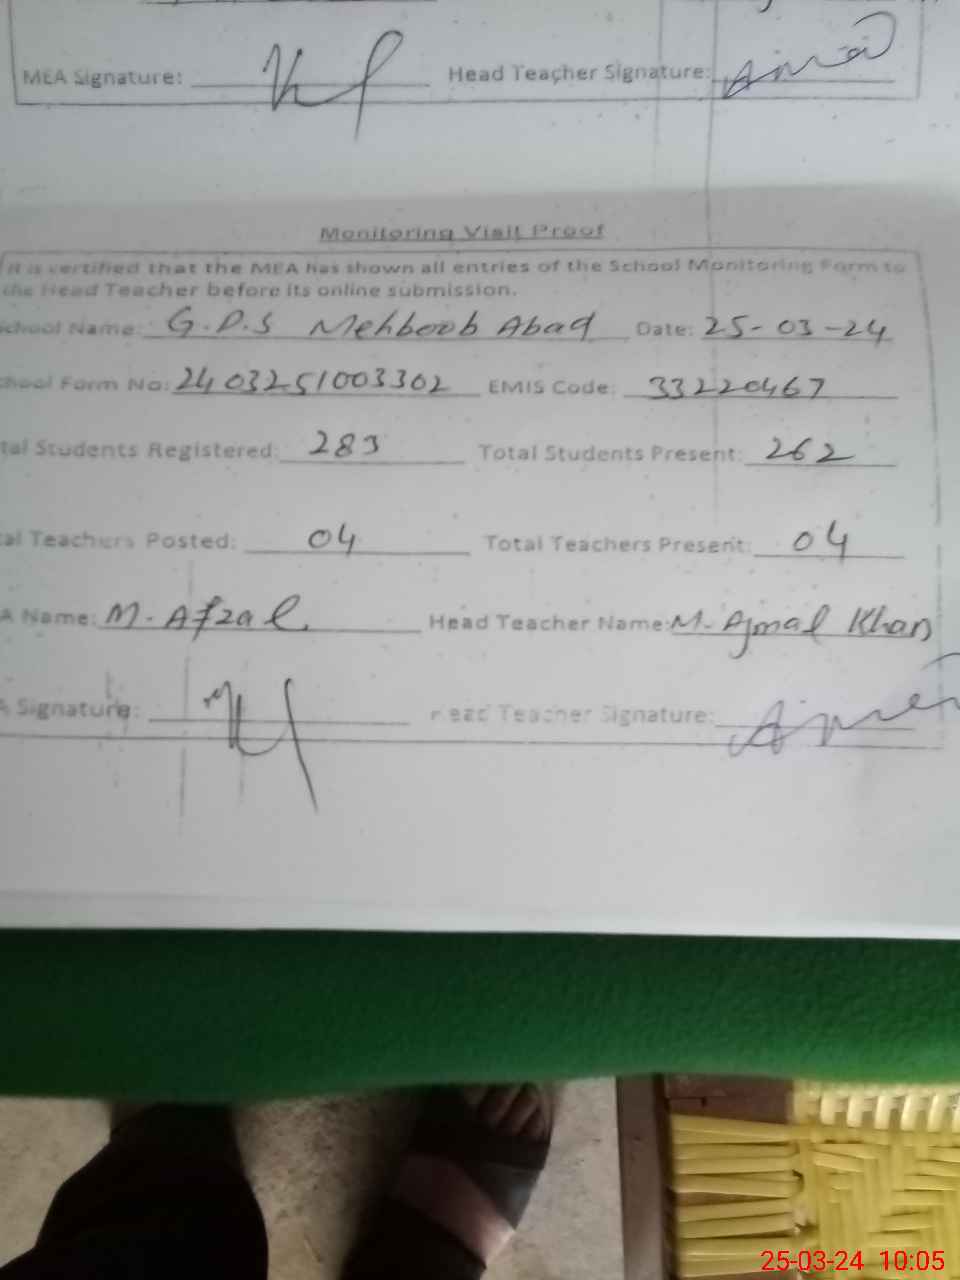 MEA Signature: Head Teacher Signature:
Monitoring Visit Proof
It is certified that the MEA has shown all entries of the School Monitoring Form to
the Head Teacher before its online submission.
School Name: G.P.S Mehboob Abad Date: 25-03-24
School Form No: 2403251003302 EMIS Code: 33220467
tal Students Registered: 283 Total Students Present: 262
tal Teachers Posted: 04 Total Teachers Present: 04
A Name: M. Afzal Head Teacher Name: M. Ajmal Khan
A Signature: Head Teacher Signature:
25-03-24 10:05